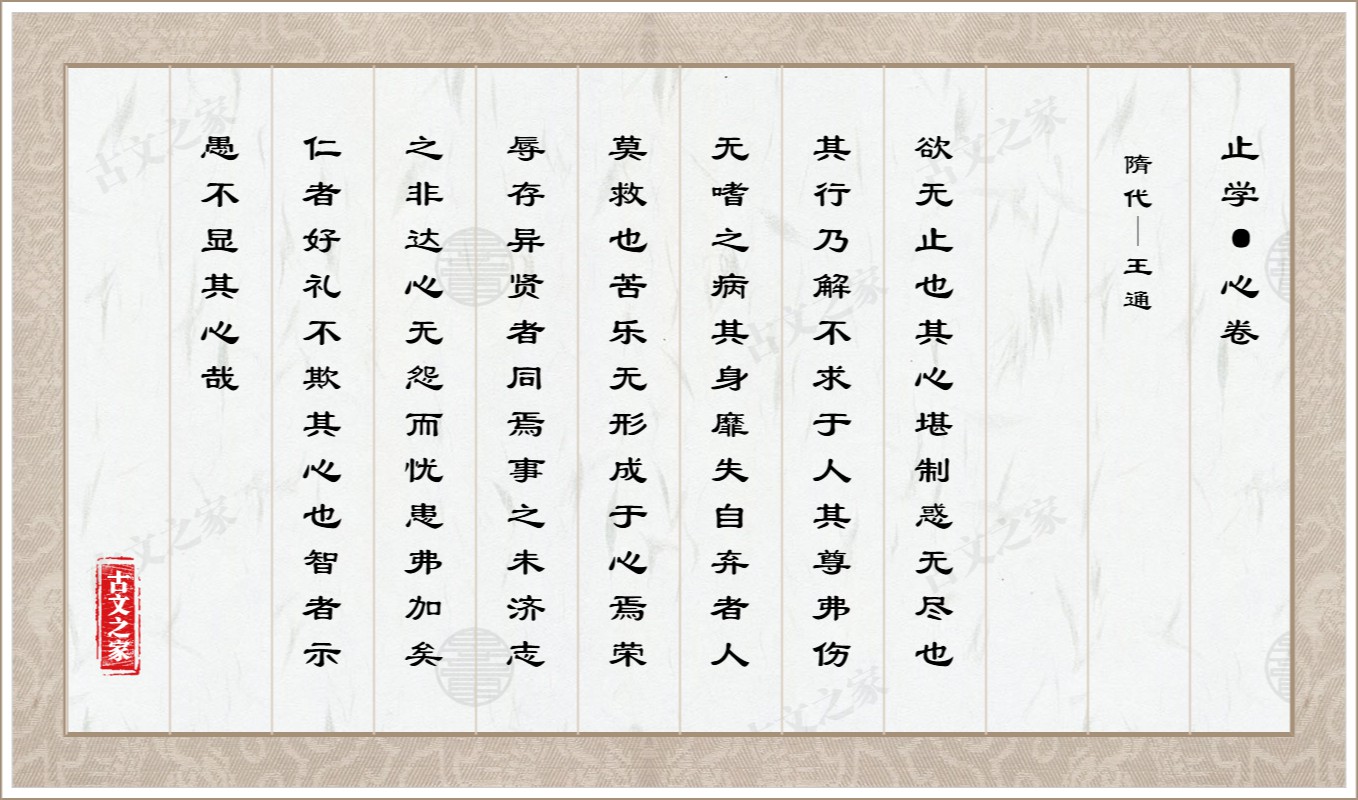 止学●心卷
隋代—王通
欲无止也其心堪制惑无尽也
其行乃解不求于人其尊弗伤
无嗜之病其身靡失自弃者人
莫救也苦乐无形成于心焉荣
辱存异贤者同焉事之未济志
之非达心无怨而忧患弗加矣
仁者好礼不欺其心也智者示
愚不显其心哉
古文之家
古文之家
古文之家
古文之家
古文之家
古文之家
古文之家